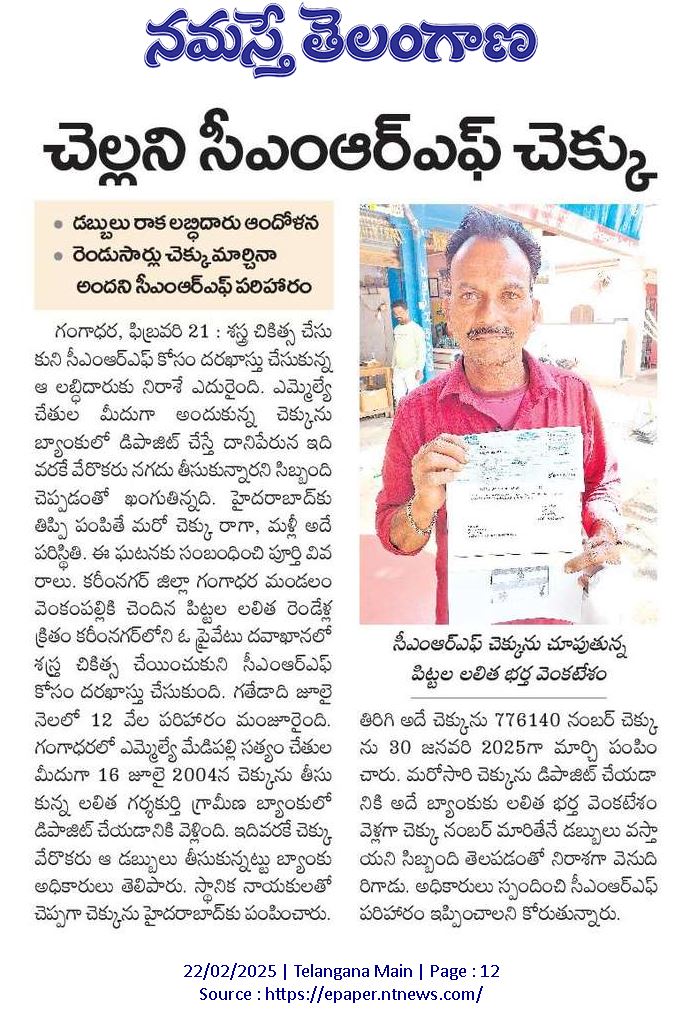 నమస్తే తెలంగాణ
చెల్లని సీఎంఆర్ఎఫ్ చెక్కు
• డబ్బులు రాక లబ్ధిదారు ఆందోళన
• రెండుసార్లు చెక్కు మార్చినా
అందని సీఎంఆర్ఎఫ్ పరిహారం
గంగాధర, ఫిబ్రవరి 21 : శస్త్ర చికిత్స చేసు
కుని సీఎంఆర్ఎఫ్ కోసం దరఖాస్తు చేసుకున్న
ఆ లబ్ధిదారుకు నిరాశే ఎదురైంది. ఎమ్మెల్యే
చేతుల మీదుగా అందుకున్న చెక్కును
బ్యాంకులో డిపాజిట్ చేస్తే దానిపేరున ఇది
వరకే వేరొకరు నగదు తీసుకున్నారని సిబ్బంది
చెప్పడంతో ఖంగుతిన్నది. హైదరాబాద్‌కు
తిప్పి పంపితే మరో చెక్కు రాగా, మళ్లీ అదే
పరిస్థితి. ఈ ఘటనకు సంబంధించి పూర్తి వివ
రాలు. కరీంనగర్ జిల్లా గంగాధర మండలం
వెంకంపల్లికి చెందిన పిట్టల లలిత రెండేళ్ల
క్రితం కరీంనగర్‌లోని ఓ ప్రైవేటు దవాఖానలో
శస్త్ర చికిత్స చేయించుకుని సీఎంఆర్ఎఫ్
కోసం దరఖాస్తు చేసుకుంది. గతేడాది జూలై
నెలలో 12 వేల పరిహారం మంజూరైంది.
గంగాధరలో ఎమ్మెల్యే మేడిపల్లి సత్యం చేతుల
మీదుగా 16 జూలై 2004న చెక్కును తీసు
కున్న లలిత గర్శకుర్తి గ్రామీణ బ్యాంకులో
డిపాజిట్ చేయడానికి వెళ్లింది. ఇదివరకే చెక్కు
వేరొకరు ఆ డబ్బులు తీసుకున్నట్టు బ్యాంకు
అధికారులు తెలిపారు. స్థానిక నాయకులతో
చెప్పగా చెక్కును హైదరాబాద్‌కు పంపించారు.
సీఎంఆర్ఎఫ్ చెక్కును చూపుతున్న
పిట్టల లలిత భర్త వెంకటేశం
తిరిగి అదే చెక్కును 776140 నంబర్ చెక్కు
ను 30 జనవరి 2025గా మార్చి పంపిం
చారు. మరోసారి చెక్కును డిపాజిట్ చేయడా
నికి అదే బ్యాంకుకు లలిత భర్త వెంకటేశం
వెళ్లగా చెక్కు నంబర్ మారితేనే డబ్బులు వస్తా
యని సిబ్బంది తెలపడంతో నిరాశగా వెనుది
రిగాడు. అధికారులు స్పందించి సీఎంఆర్ఎఫ్
పరిహారం ఇప్పించాలని కోరుతున్నారు.
22/02/2025 | Telangana Main | Page : 12
Source : https://epaper.ntnews.com/